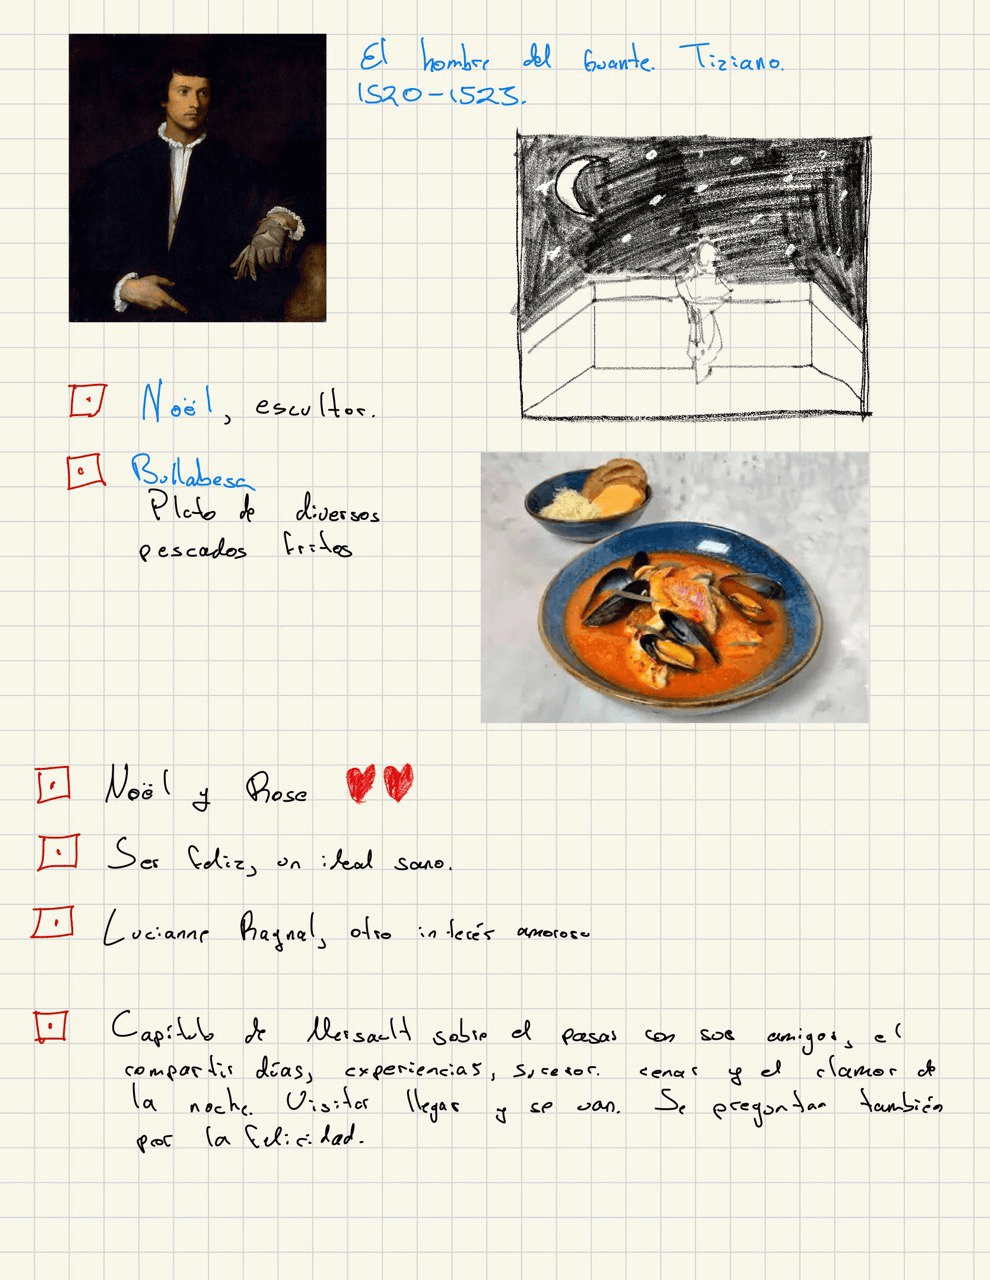 El hombre del Guante. Tiziano.
1520-1523.
Noël, escultor.
Bullabesa
Plato de diversos
pescados fritos
Noël y Rose
Ser feliz, un ideal sano.
Lucianne Raynal, otro interés amoroso
Capítulo de Mersault sobre el pasar con sus amigos, el
compartir días, experiencias, sucesor. cenar y el clamor de
la noche. Visitar llegar y se van. Se preguntan también
por la felicidad.